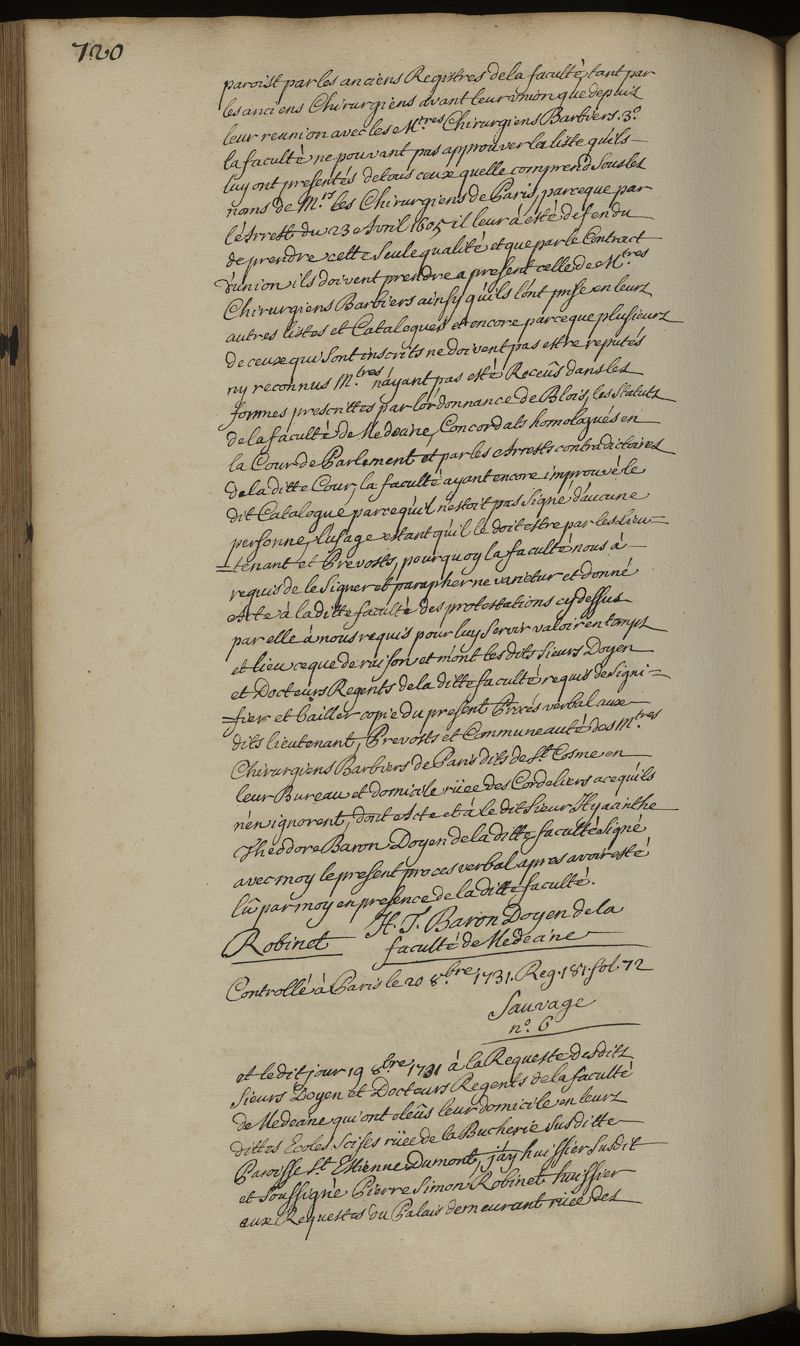 720
paroist par les anciens Registres de la faculté, tant par
les anciens Chirurgiens avant leur union que depuis
leur reunion avec les M.tres Chirurgiens Barbiers. 3.º
la faculté ne pouvant pas approuver la liste qu'ils
luy ont presentés de tous ceux quelle comprend sous les
noms de M.rs les Chirurgiens de Paris, parce que par
l'Arrest du 23 Avril 1605 il leur à esté défendu
de prendre cette seule qualité et que par le Contract
d'union ils doivent prendre a present celle de M.tres
Chirurgiens Barbiers ainsy qu'ils l'ont prise en leurs
autres listes et Catalogues et encore parce que plusieurs
de ceux qui sont inscrits ne doivent pas estre reputés
ny reconnus M.tres n'ayant pas esté Receûs dans les
formes prescrittes par l'ordonnance de Blois, les Statuts
de la faculté de Medecine, Concordats homologués en
la Cour de Parlement et par les Arrests contradictoires
de la ditte Cour, la faculté ayant encore improuvé le
dit Catalogue parce qu'il n'estoit pas signé d'aucune
personne, l'usage estant qu'il le doit estre par les Lieu=
=tenant et Prevosts, pourquoy la faculté nous à
requis de le signer et parapher ne varietur et donné
Acte à la ditte faculté des protestations cy dessus
par elle à nous requis pour luy servir valoir en temps
et lieu ce que de raison et m'ont les dits Sieurs Doyen
et Docteurs Regents de la ditte faculté requis de signi=
=fier et bailler copie du present Procés verbal aux
dits lieutenant, Prevosts et Communeauté des M.tres
Chirurgiens Barbiers de Paris dits de S.t Cosme en
leur Bureau et domicile rüee des Cordeliers a ce qu'ils
n'en ignorent, dont Acte et à le dit Sieur Hyacinthe
Theodore Baron Doyen de la ditte faculté signé
avec moy le present proces verbal apres avoir esté
lû par moy en presence de la ditte faculté.
Robinet H. T. Baron Doyen de la
faculté de Medecine
Controllé à Paris le 20 8.bre 1731. Reg. 181. fol. 72
Sauvage
n.º 6
et le dit jour 19 8.bre 1731 à la Requeste desdits
Sieurs Doyen et Docteurs Regents de la faculté
de Medecine qui ont eleûs leur domicile en leurs
dittes Ecoles scises rüee de la Bucherie susditte
Paroisse S.t Estienne Dumont, j'ay huissier susdit
et soussigné Pierre Simon Robinet huissier
aux Requestes du Palais demeurant rüee des